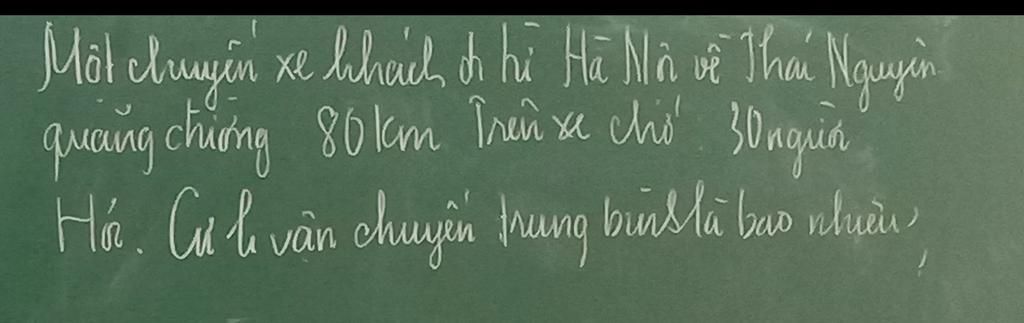 Một chuyến xe khách đi từ Hà Nội về Thái Nguyên
quãng đường 80 km Trên xe chở 30 người
Hỏi. Cự li vận chuyển trung bình là bao nhiêu?